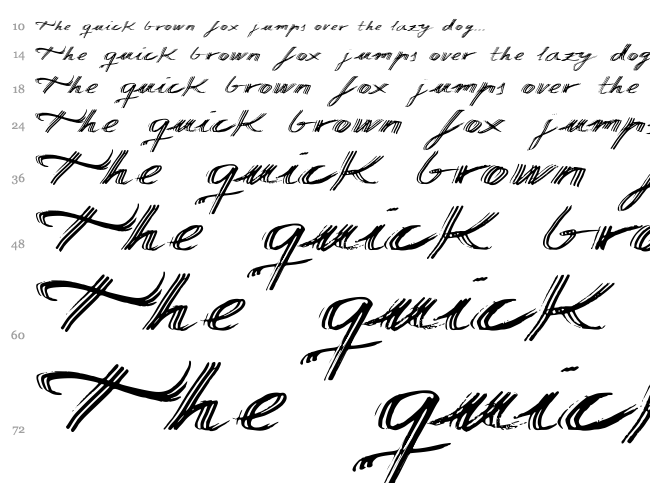 10 The quick brown fox jumps over the lazy dog...
14 The quick brown fox jumps over the lazy dog
18 The quick brown fox jumps over the
24 The quick brown fox jumps
36 The quick brown f
48 The quick bro
60 The quick
72 The quick